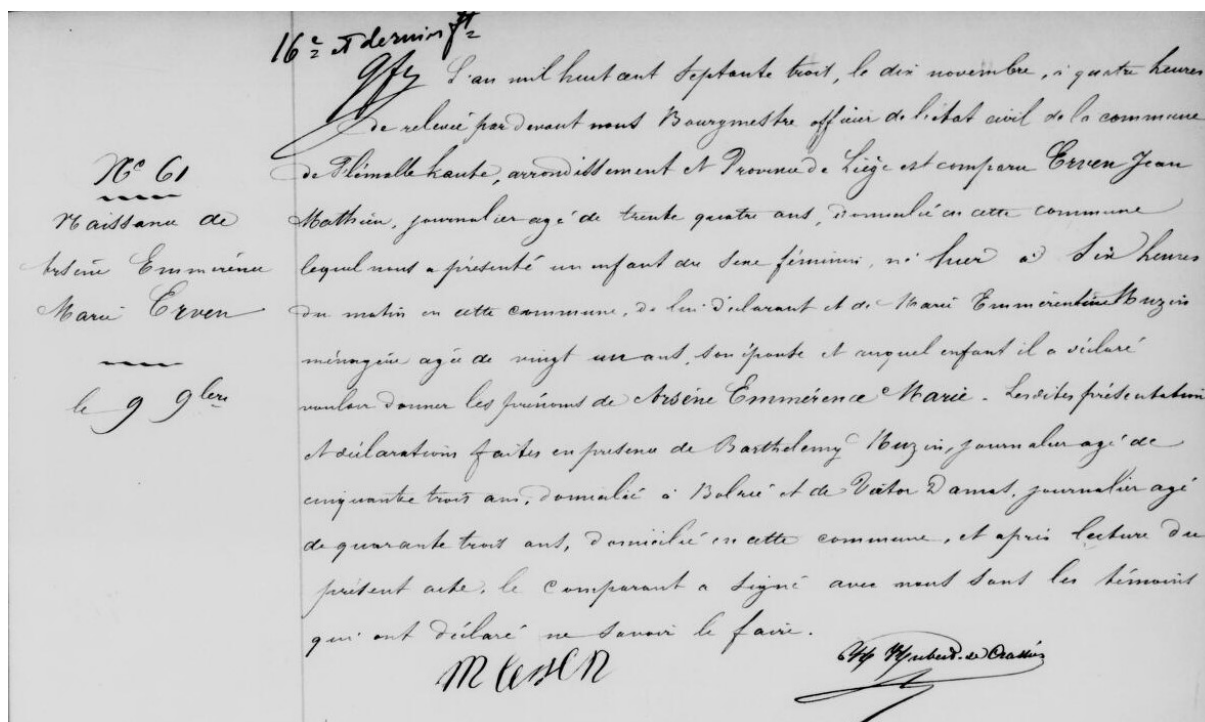 16e et dernier ft
L'an mil huit cent septante trois, le dix novembre, à quatre heures
de relevée par devant nous Bourgmestre officier de l'état civil de la commune
de Flémalle haute, arrondissement et Province de Liège est comparu Erven Jean
Mathieu, journalier agé de trente quatre ans, domicilié en cette commune
lequel nous a présenté un enfant du sexe féminin, né hier à six heures
du matin en cette commune, de lui déclarant et de Marie Emmérentine Muzin
ménagère agée de vingt un ans, son épouse et auquel enfant il a déclaré
vouloir donner les prénoms de Arsène Emmérence Marie - Lesdites présentation
et déclarations faites en présence de Barthelemy Muzin, journalier agé de
cinquante trois ans, domicilié à et de Victor Damas, journalier agé
de quarante trois ans, domicilié en cette commune, et après lecture du
présent acte, le comparant a signé avec nous sans les témoins
qui ont déclaré ne savoir le faire.
No 61
Naissance de
Arsène Emmérence
Marie Erven
le 9 9bre
M Erven